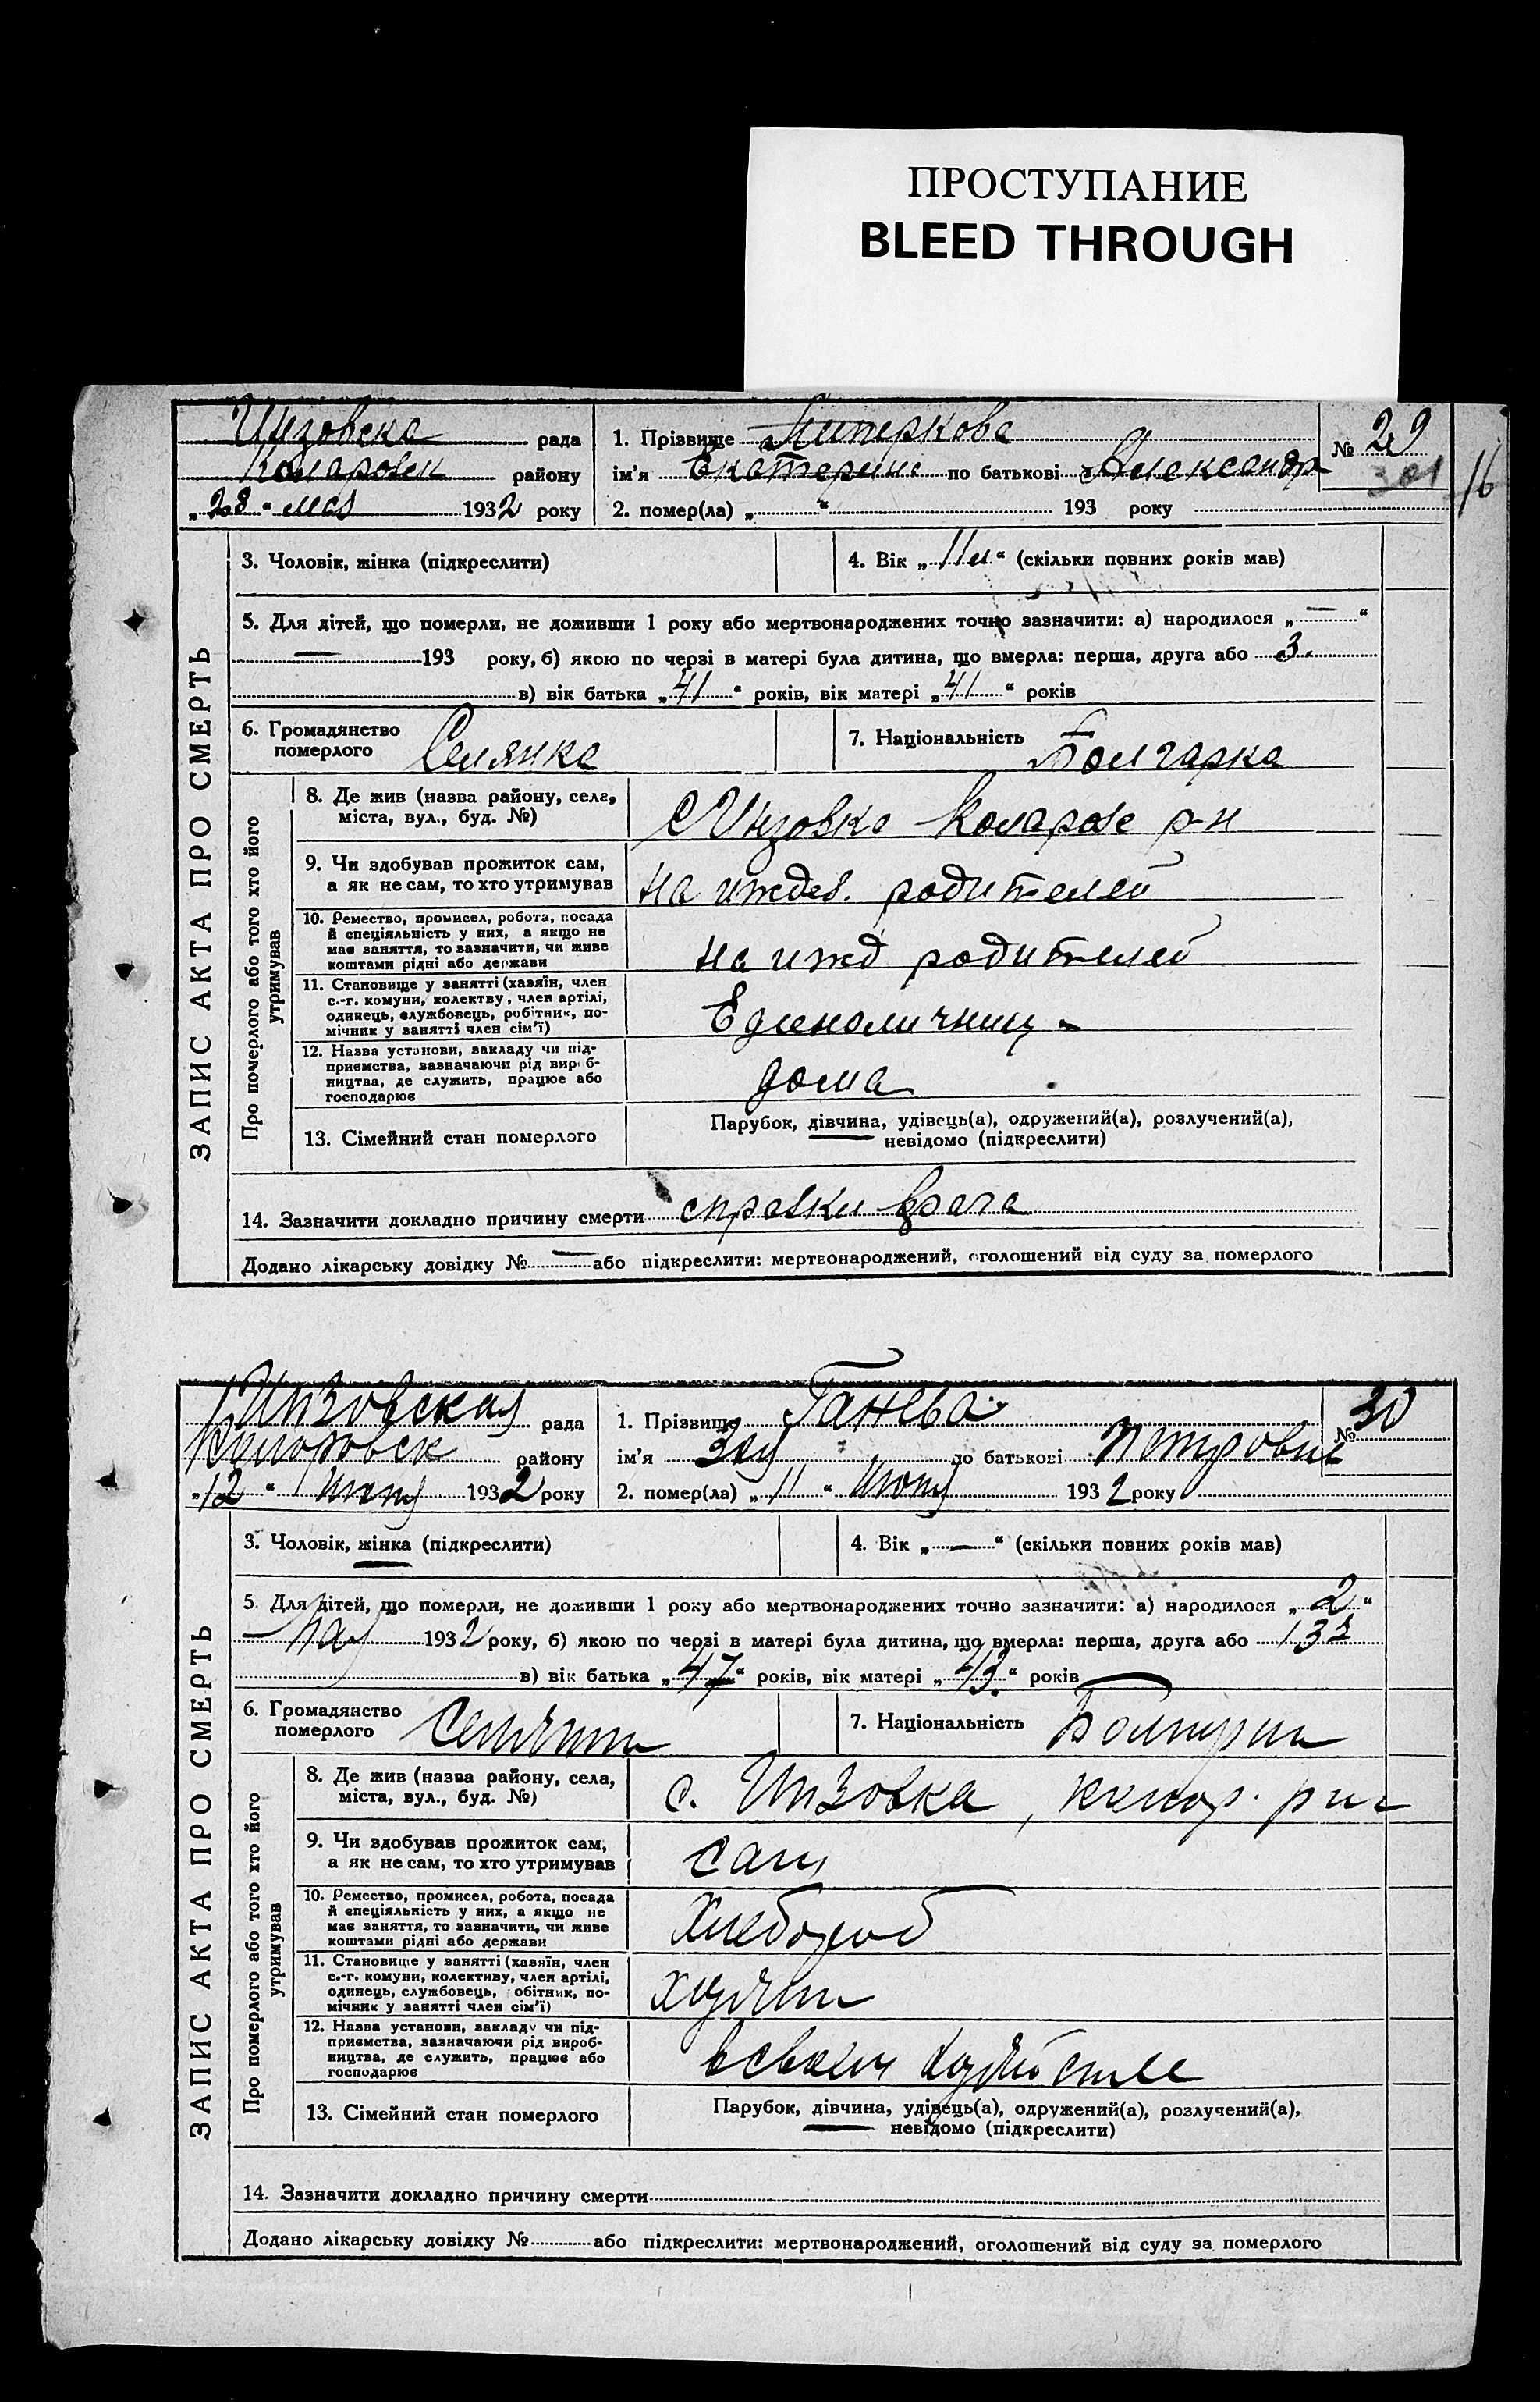 ПРОСТУПАНИЕ
BLEED THROUGH
Инзовска рада
Коларовск району
„28“ мая 1932 року
1. Прізвище Пиперкова
ім'я Екатерина по батькові Александр
№ 29
301
16
2. помер(ла) „ “ 193 року
ЗАПИС АКТА ПРО СМЕРТЬ
3. Чоловік, жінка (підкреслити)
4. Вік „11 “ (скільки повних років мав)
5. Для дітей, що померли, не доживши 1 року або мертвонароджених точно зазначити: а) народилося „—“
— 193 року, б) якою по черзі в матері була дитина, що вмерла: перша, друга або 3.
в) вік батька „41“ років, вік матері „41“ років
6. Громадянство померлого Селянка
7. Національність Болгарка
Про померлого або того хто його утримував
8. Де жив (назва району, села, міста, вул., буд. №)
С Инзовка Коларов р-н
9. Чи здобував прожиток сам, а як не сам, то хто утримував
на иждев. родителей
10. Ремество, промисел, робота, посада й спеціяльність у них, а якщо не має заняття, то зазначити, чи живе коштами рідні або держави
на ижд родителей
11. Становище у занятті (хазяїн, член с.-г. комуни, колективу, член артілі, одинець, службовець, робітник, помічник у занятті член сім'ї)
Единоличниц
12. Назва установи, закладу чи підприємства, зазначаючи рід виробництва, де служить, працює або господарює
дома
13. Сімейний стан померлого
Парубок, дівчина, удівець(а), одружений(а), розлучений(а),
невідомо (підкреслити)
14. Зазначити докладно причину смерти справки врача
Додано лікарську довідку № — або підкреслити: мертвонароджений, оголошений від суду за померлого
Инзовская рада
Коларовск району
„12“ Июня 1932 року
1. Прізвище Ганева
ім'я Зоя по батькові Петровна
№ 30
2. помер(ла) „11“ Июня 1932 року
ЗАПИС АКТА ПРО СМЕРТЬ
3. Чоловік, жінка (підкреслити)
4. Вік „—“ (скільки повних років мав)
5. Для дітей, що померли, не доживши 1 року або мертвонароджених точно зазначити: а) народилося „2“
Мая 1932 року, б) якою по черзі в матері була дитина, що вмерла: перша, друга або
в) вік батька „47“ років, вік матері „43“ років
6. Громадянство померлого
7. Національність
Про померлого або того хто його утримував
8. Де жив (назва району, села, міста, вул., буд. №)
с. Инзовка, Колар. р-на
9. Чи здобував прожиток сам, а як не сам, то хто утримував
сам
10. Ремество, промисел, робота, посада й спеціяльність у них, а якщо не має заняття, то зазначити, чи живе коштами рідні або держави
Хлебороб
11. Становище у занятті (хазяїн, член с.-г. комуни, колективу, член артілі, одинець, службовець, робітник, помічник у занятті член сім'ї)
хозяин
12. Назва установи, закладу чи підприємства, зазначаючи рід виробництва, де служить, працює або господарює
в своем хозяйстве
13. Сімейний стан померлого
Парубок, дівчина, удівець(а), одружений(а), розлучений(а),
невідомо (підкреслити)
14. Зазначити докладно причину смерти
Додано лікарську довідку № або підкреслити: мертвонароджений, оголошений від суду за померлого